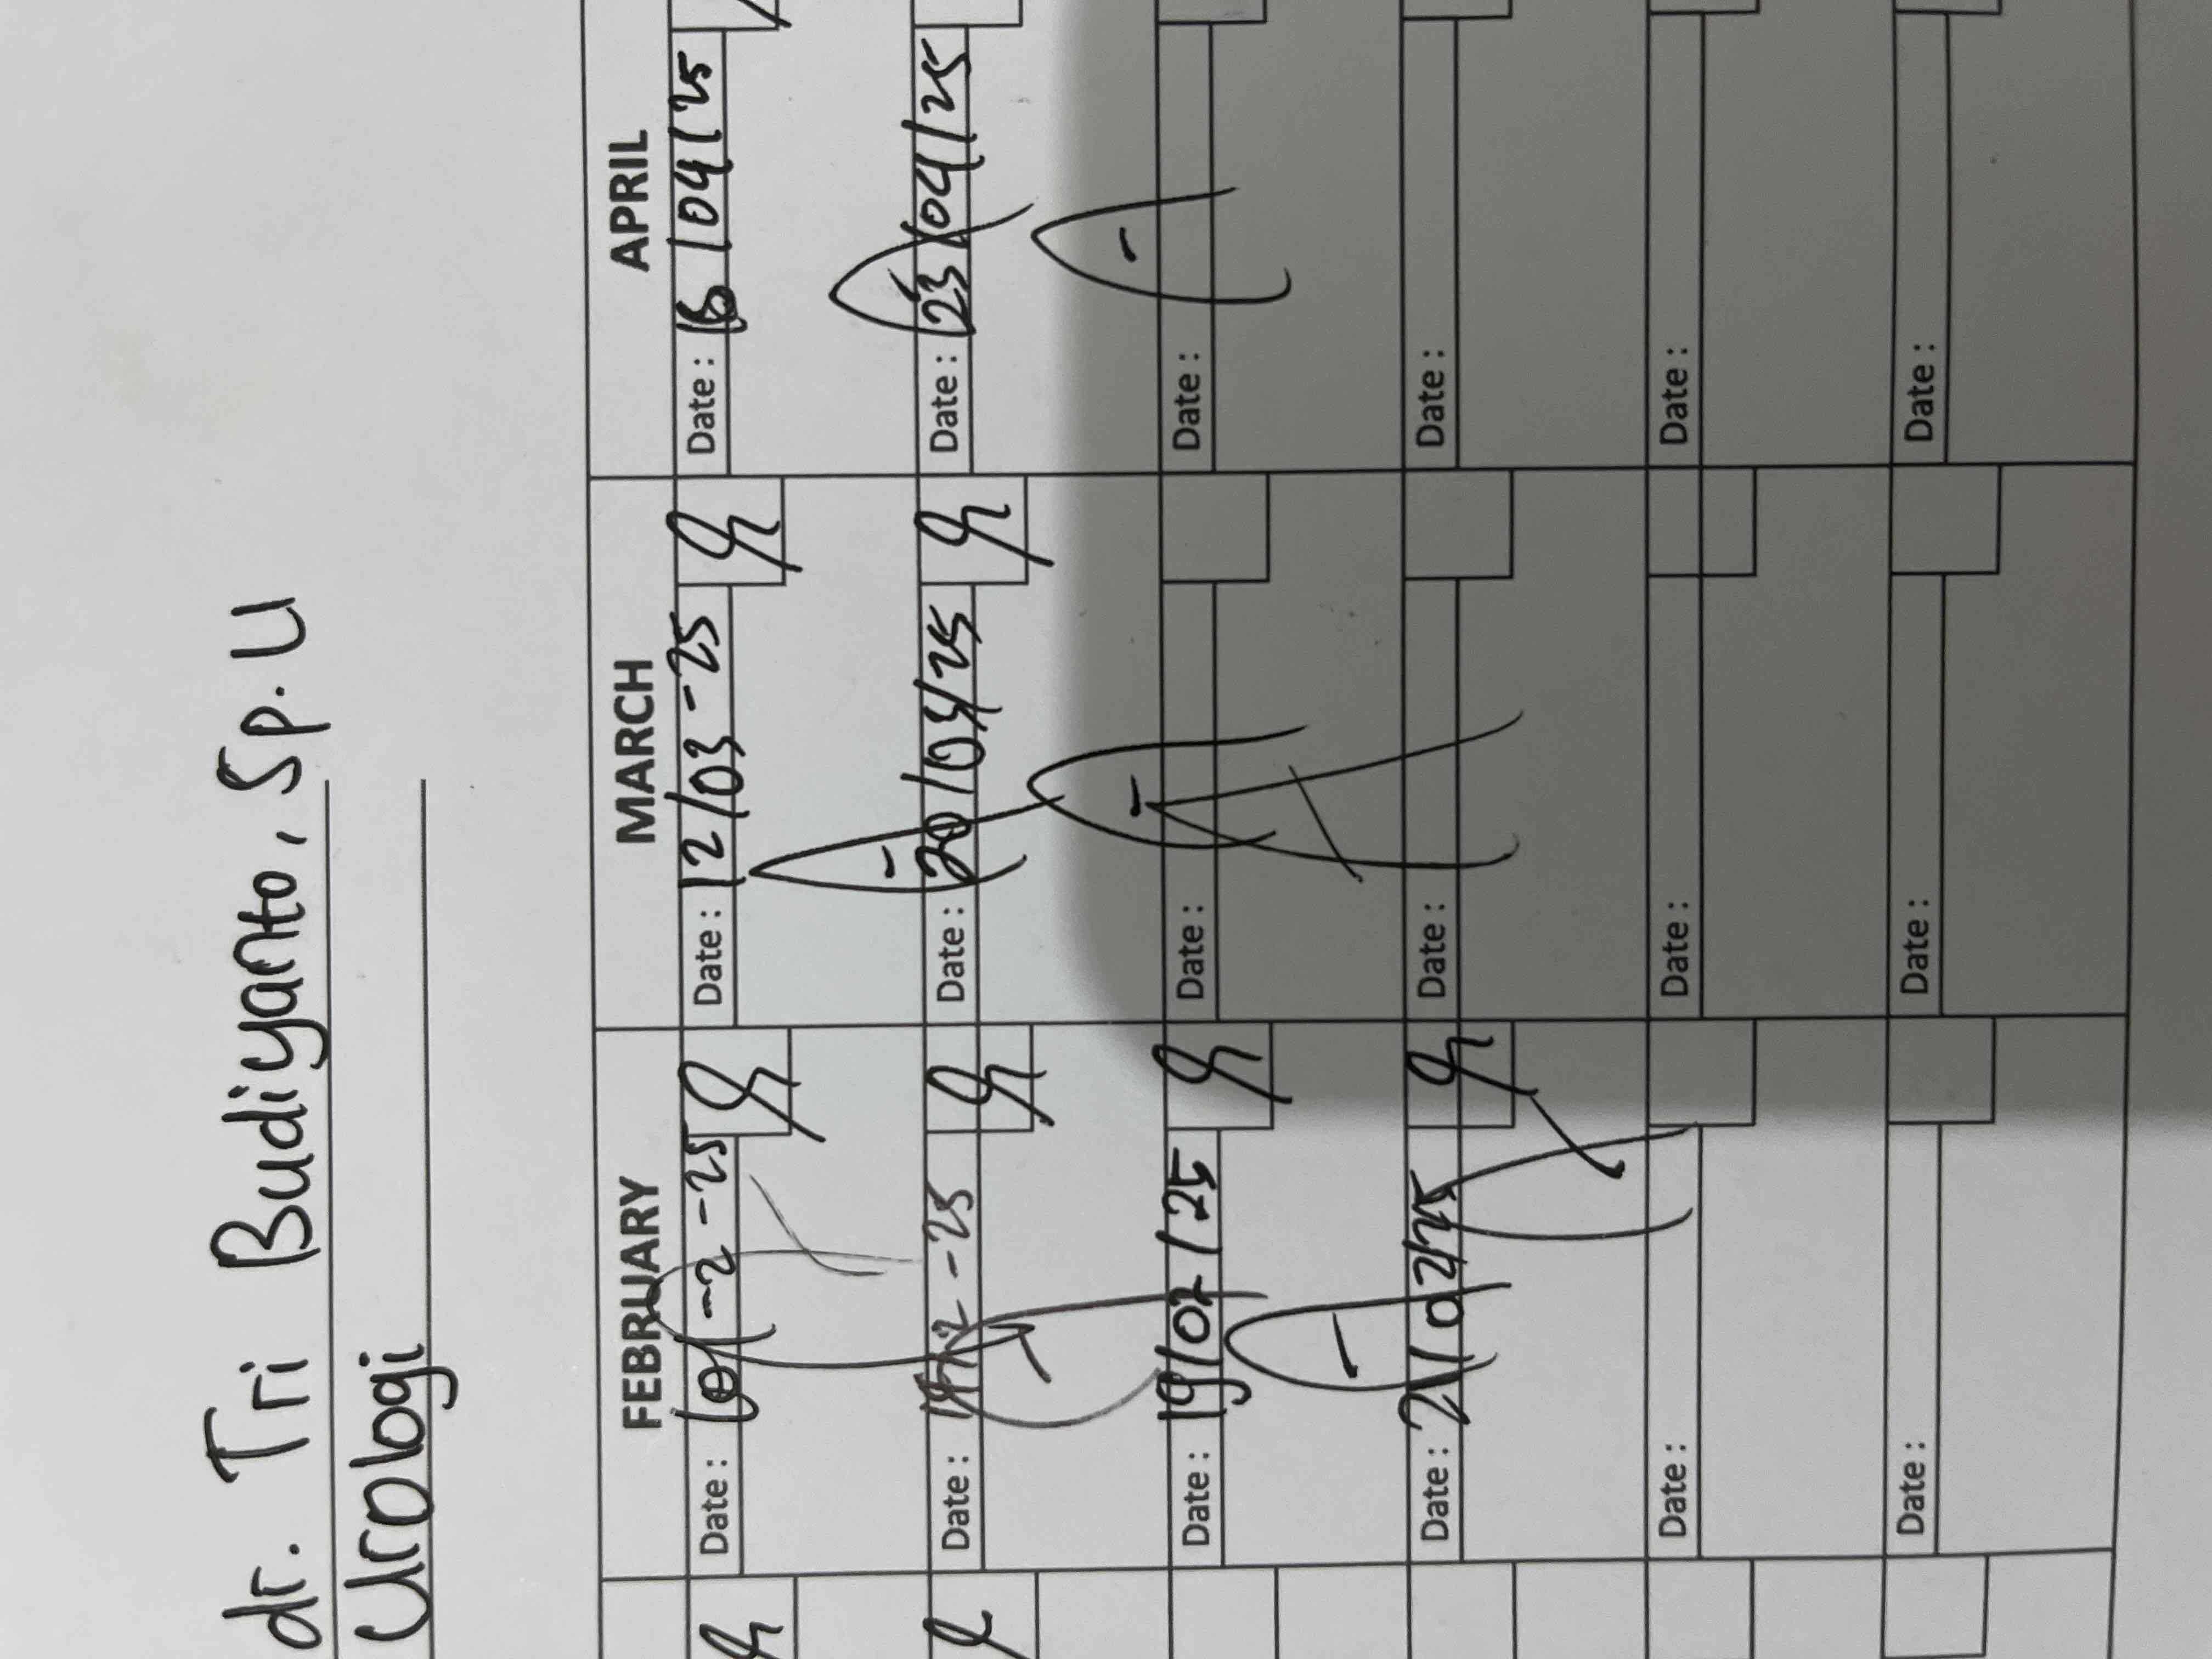 dr. Tri Budiyanto, Sp. U
Urologi
FEBRUARY MARCH APRIL
Date : 10-2-25 Date : 12/03-25 Date : /04/25
Date : -2-25 Date : 20/03/25 Date : 23/04/25
Date : 19/02/25 Date : Date :
Date : 21/02/25 Date : Date :
Date : Date : Date :
Date : Date : Date :